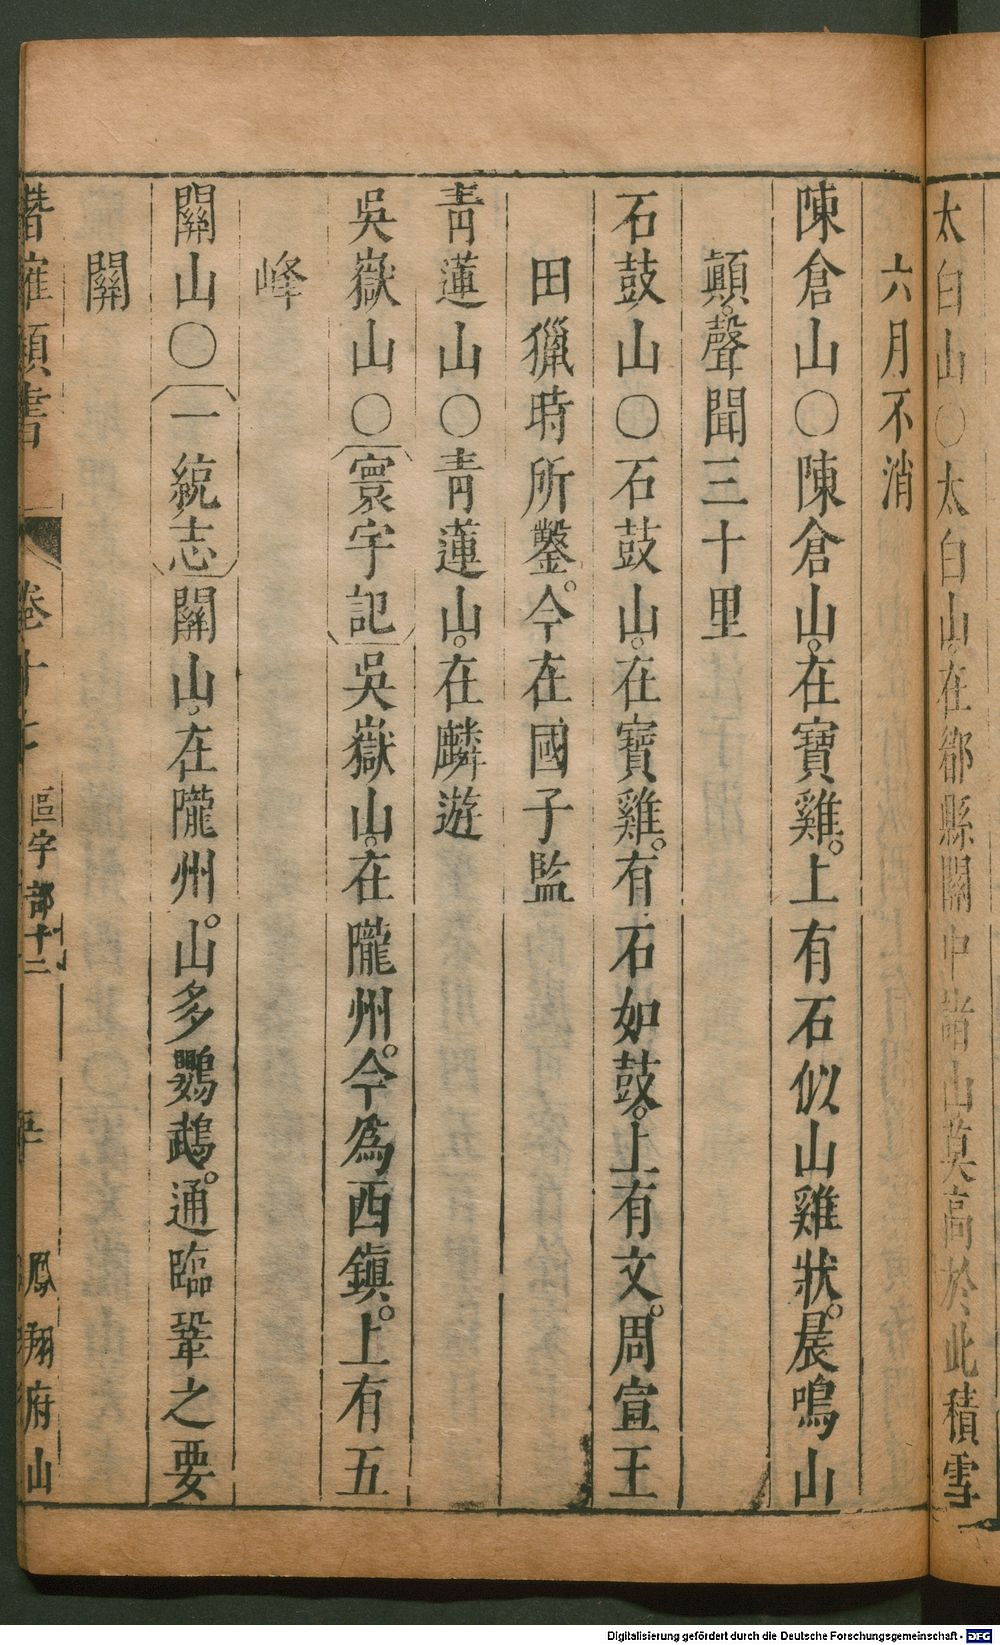 太白山○太白山。在郿縣關中諸山莫高於此積雪
六月不消
陳倉山○陳倉山。在寶雞。上有石似山雞狀。晨鳴山
顛。聲聞三十里
石鼓山○石鼓山。在寶雞。有石如鼓。上有文。周宣王
田獵時所鑿。今在國子監
青蓮山○青蓮山。在麟遊
吳嶽山○〔寰宇記〕吳嶽山。在隴州。今爲西鎮。上有五
峰
關山○〔一統志〕關山。在隴州。山多鸚鵡。通臨鞏之要
關
潛確類書
卷十七
區宇部十二
鳳翔府山
Digitalisierung gefördert durch die Deutsche Forschungsgemeinschaft - DFG